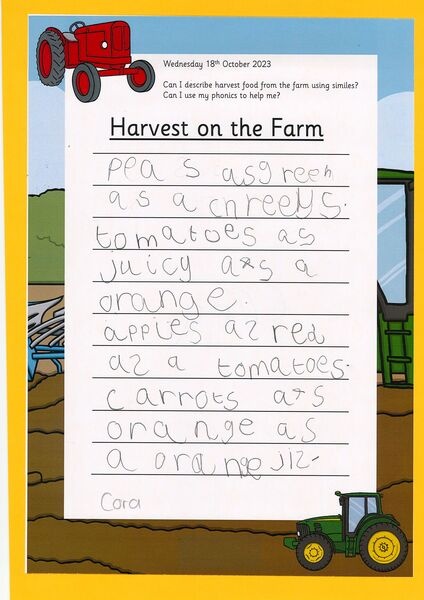 Wednesday 18th October 2023
Can I describe harvest food from the farm using similes?
Can I use my phonics to help me?
Harvest on the Farm
peas asgreeh
as a
tomatoes as
juicy as a
orange.
apples as red
as a tomatoes.
carrots as
orange as
a orange
Cora